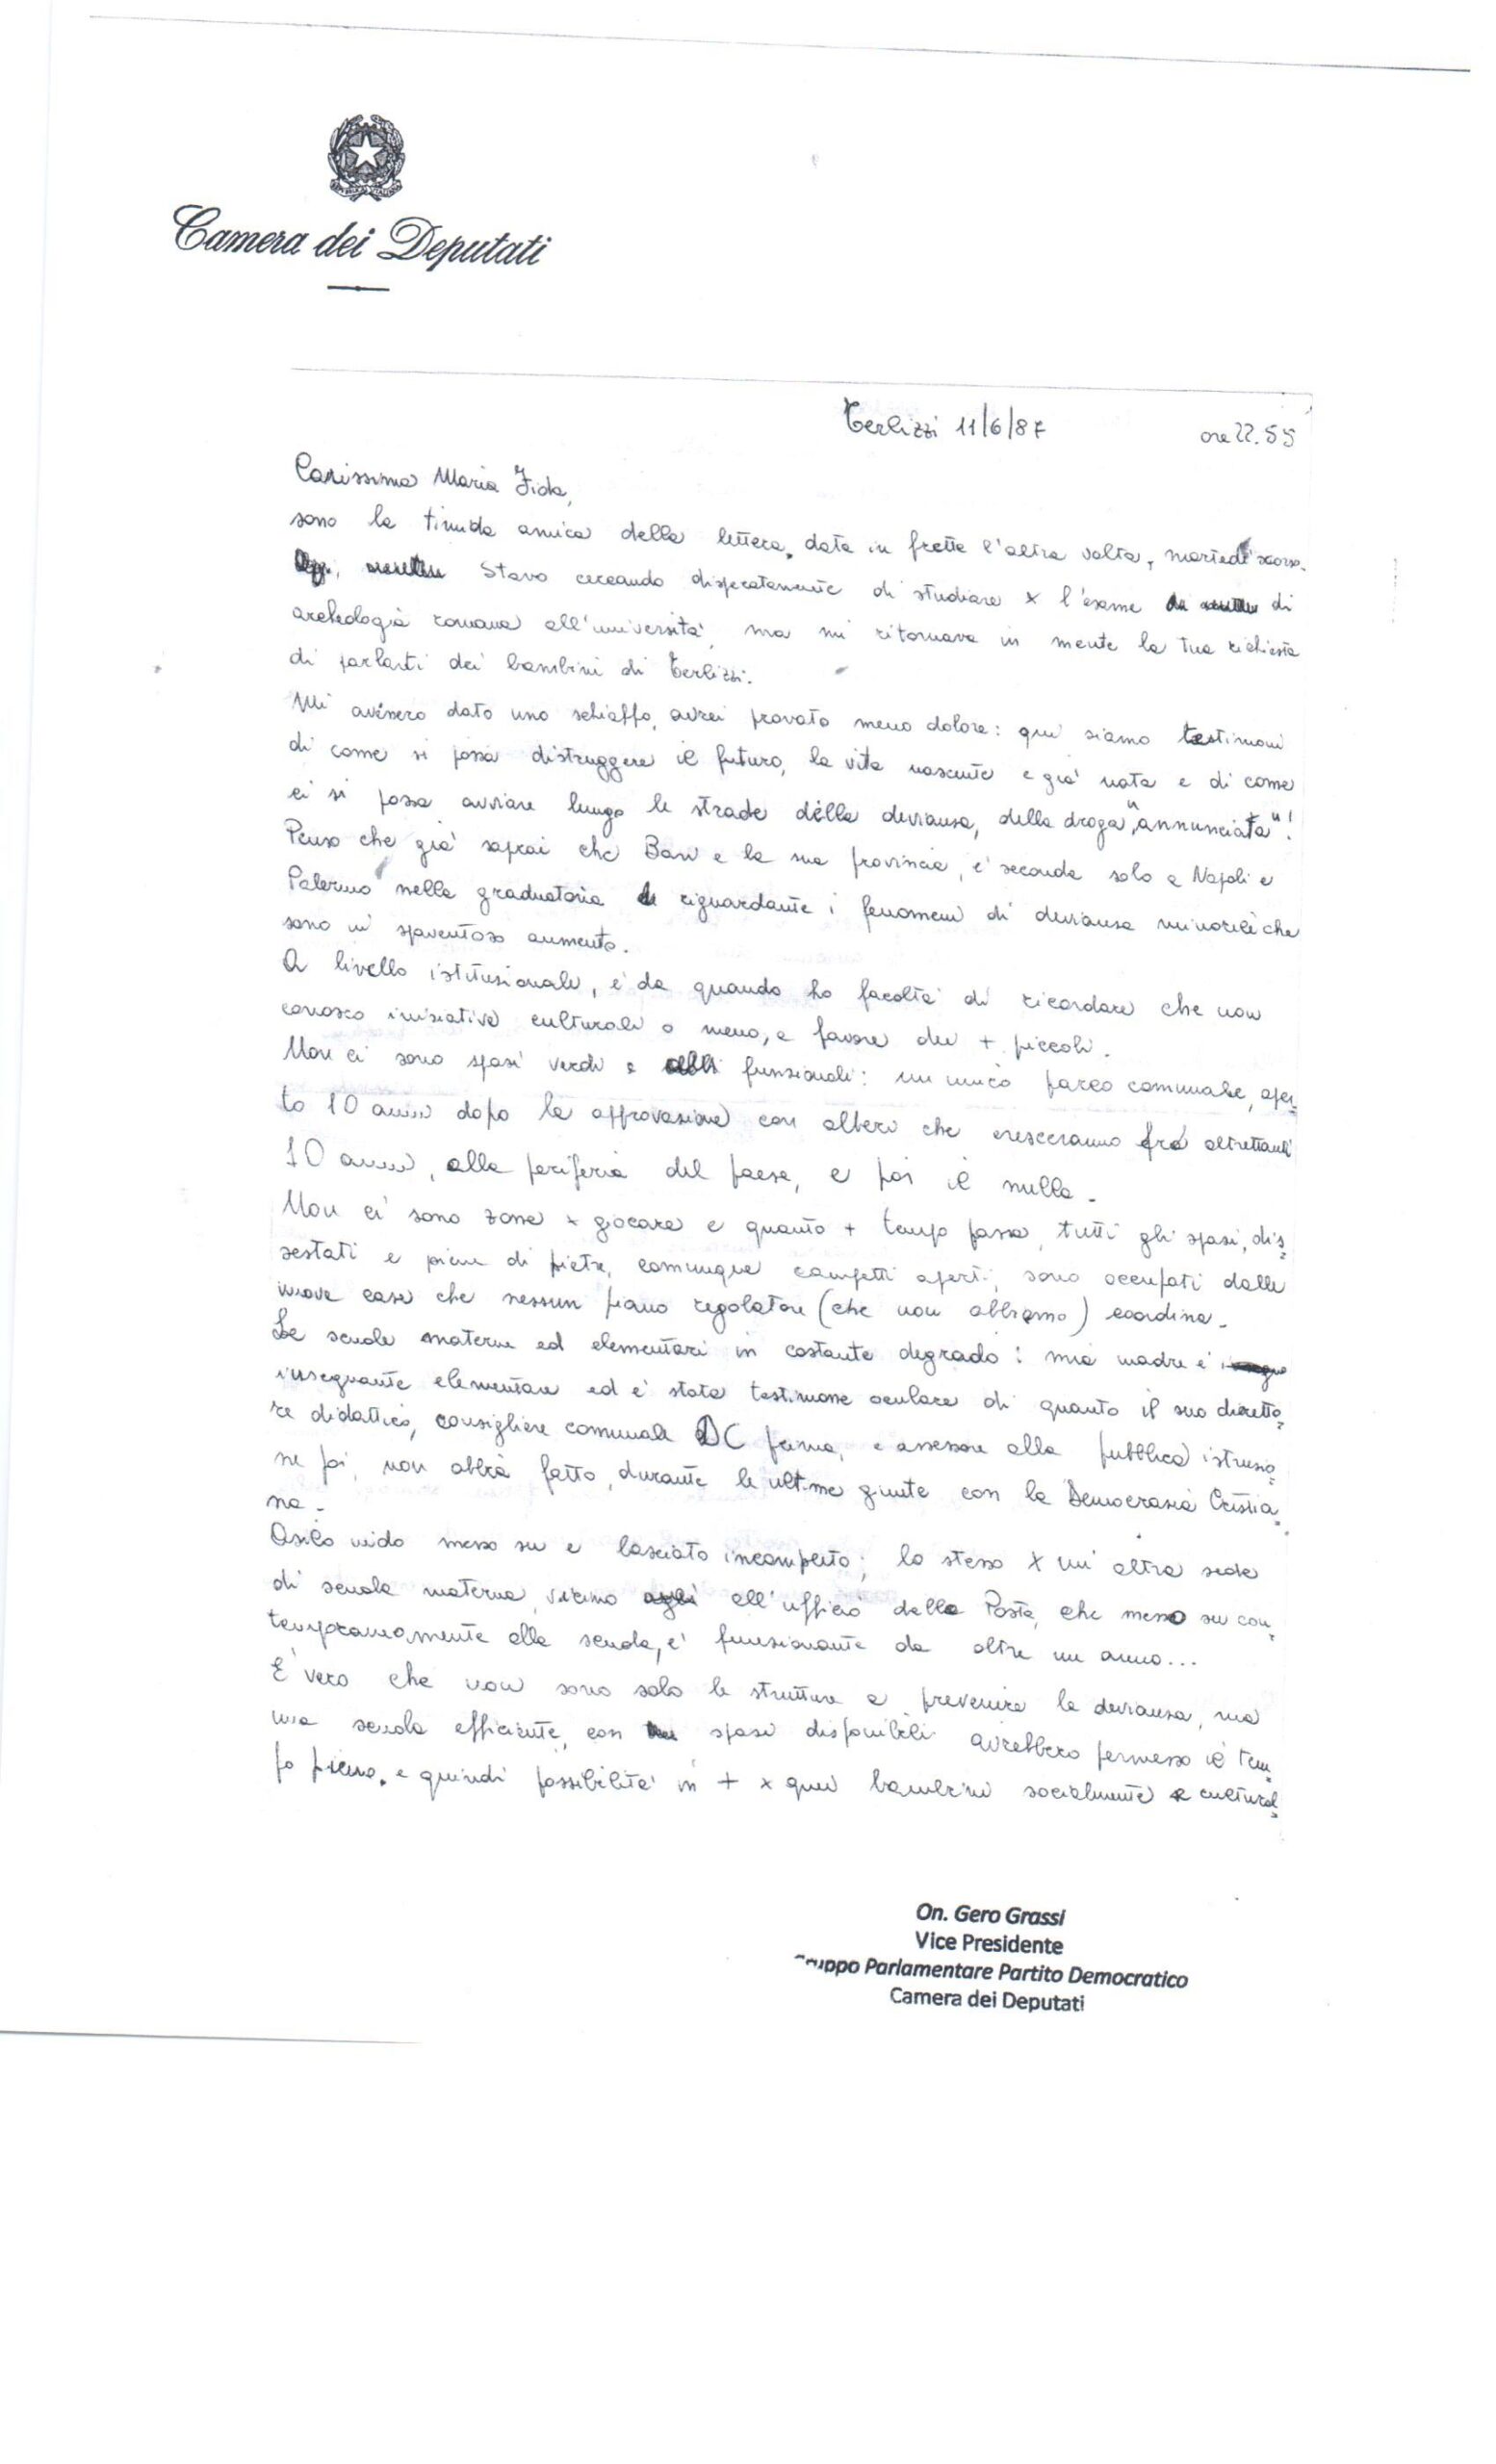 Camera dei Deputati
Terlizzi 11/6/87 ore 22.55
Carissima Maria Fida,
sono la timida amica della lettera, data in fretta l'altra volta, martedì scorso.
Stavo cercando disperatamente di studiare x l'esame di
archeologia romana all'università, ma mi ritornava in mente la tua richiesta
di parlarti dei bambini di Terlizzi.
Mi avessero dato uno schiaffo, avrei provato meno dolore: qui siamo testimoni
di come si possa distruggere il futuro, la vita nascente e già nata e di come
ci si possa avviare lungo le strade della devianza, della droga "annunciata"!
Penso che già saprai che Bari e la sua provincia, è seconda solo a Napoli e
Palermo nella graduatoria riguardante i fenomeni di devianza minorile che
sono in spaventoso aumento.
A livello istituzionale, è da quando ho facoltà di ricordare che non
conosco iniziative culturali o meno, a favore dei + piccoli.
Non ci sono spazi verdi e funzionali: un unico parco comunale, aper-
to 10 anni dopo la approvazione con alberi che cresceranno fra altrettanti
10 anni, alla periferia del paese, e poi il nulla.
Non ci sono zone x giocare e quanto + tempo passa, tutti gli spazi, dis-
sestati e pieni di pietre, comunque campetti aperti, sono occupati dalle
nuove case che nessun piano regolatore (che non abbiamo) coordina.
Le scuole materne ed elementari in costante degrado: mia madre è
insegnante elementare ed è stata testimone oculare di quanto il suo diretto-
re didattico, consigliere comunale DC prima, e assessore alla pubblica istruzio-
ne poi, non abbia fatto, durante le ultime giunte con la Democrazia Cristia-
na.
Asilo nido messo su e lasciato incompiuto; lo stesso x un'altra sede
di scuola materna, vicino all'ufficio della Posta, che messo su con-
temporaneamente alla scuola, è funzionante da oltre un anno...
E' vero che non sono solo le strutture a prevenire la devianza, ma
una scuola efficiente, con spazi disponibili avrebbero permesso il tem-
po pieno, e quindi possibilità in + x quei bambini socialmente e cultural-
On. Gero Grassi
Vice Presidente
Gruppo Parlamentare Partito Democratico
Camera dei Deputati